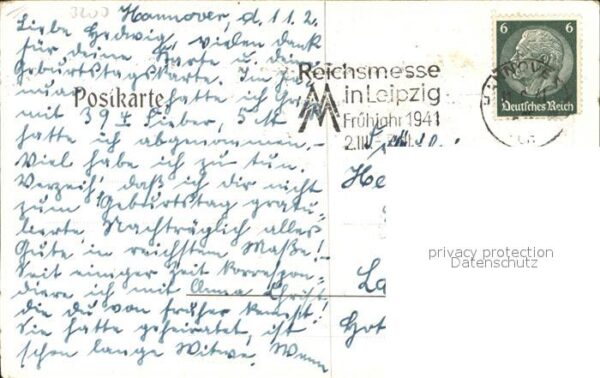 3200
Hannover, d. 11.2.
Liebe Hedwig! Vielen Dank
für deine Karte u. deine
Geburtstagskarte. Im
hatte ich Grippe
mit 39 Fieber, 5
hatte ich abgenommen. -
Viel habe ich zu tun.
Verzeih', daß ich dir nicht
zum Geburtstag gratu-
lierte. Nachträglich alles
Gute in reichstem Maße! -
Seit einiger Zeit korrespon-
diere ich mit Anna Christ
die du von früher kennst!
Sie hatte geheiratet, ist
schon lange Witwe. Wenn
Postkarte
Reichsmesse
in Leipzig
Frühjahr 1941
2.III.
6 6
Deutsches Reich
He
La
Hot
privacy protection
Datenschutz